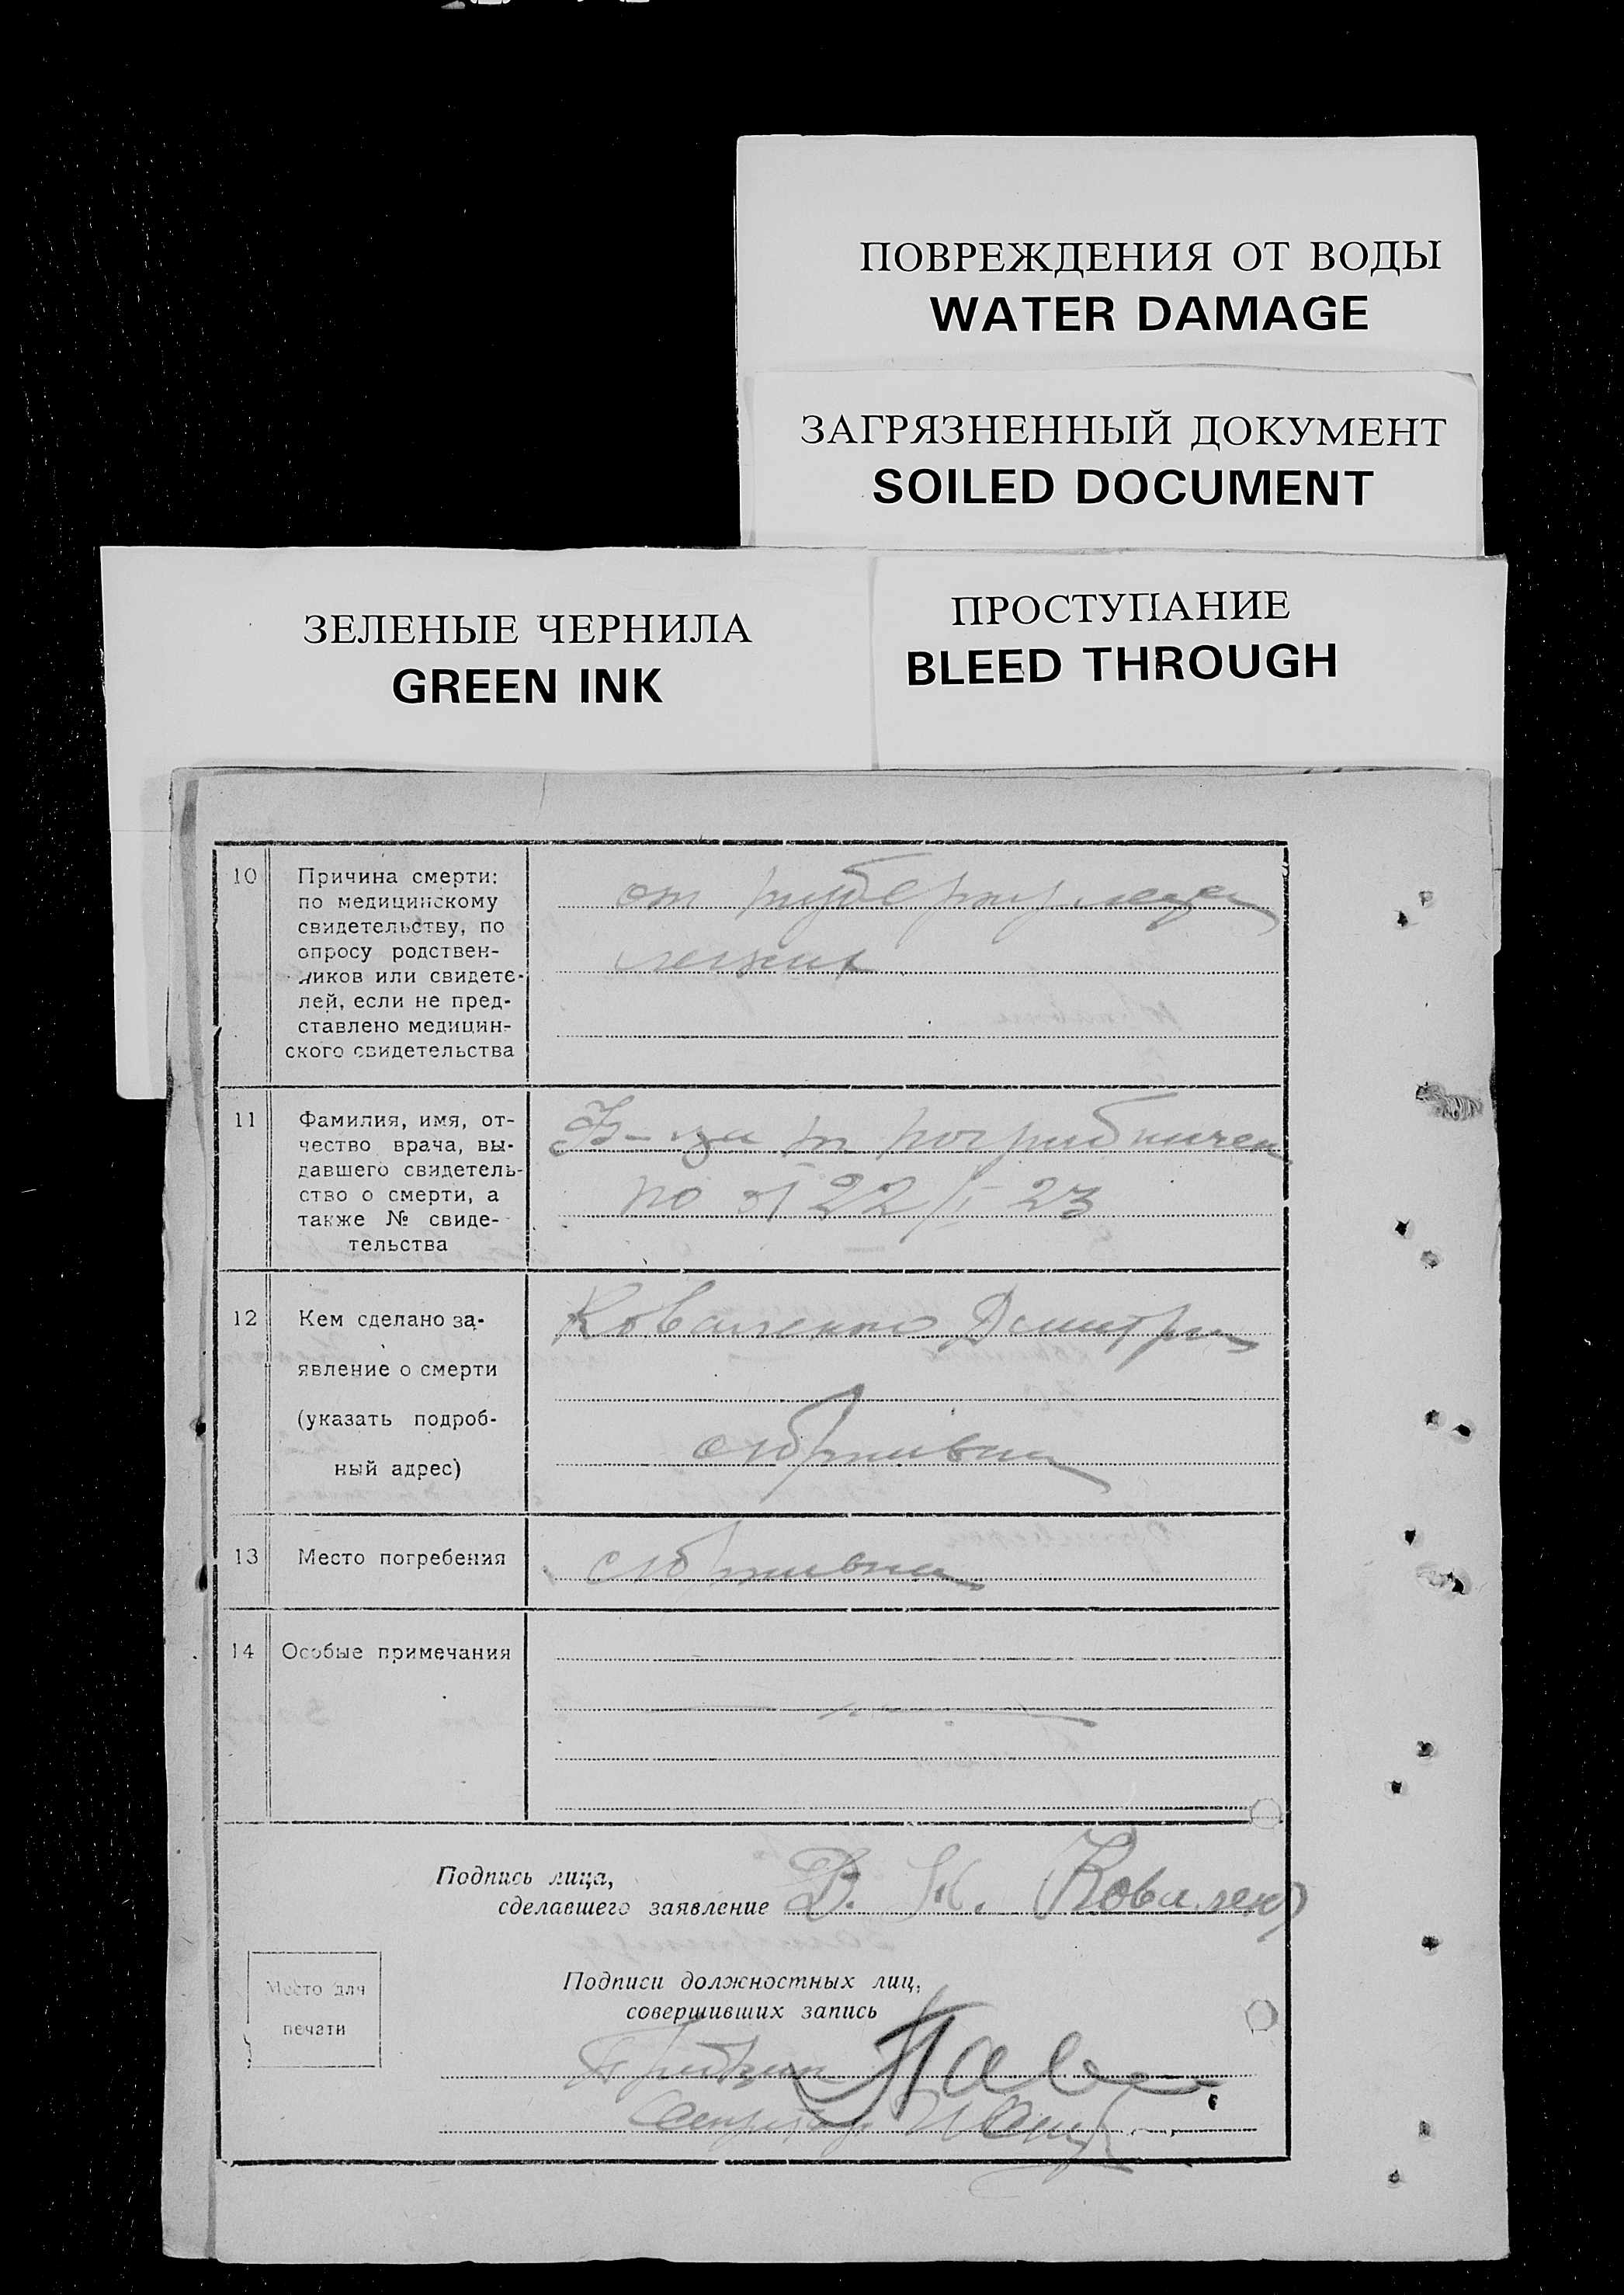 ПОВРЕЖДЕНИЯ ОТ ВОДЫ
WATER DAMAGE
ЗАГРЯЗНЕННЫЙ ДОКУМЕНТ
SOILED DOCUMENT
ЗЕЛЕНЫЕ ЧЕРНИЛА
GREEN INK
ПРОСТУПАНИЕ
BLEED THROUGH
10
Причина смерти:
по медицинскому
свидетельству, по
опросу родствен-
ников или свидете-
лей, если не пред-
ставлено медицин-
ского свидетельства
от
легких
11
Фамилия, имя, от-
чество врача, вы-
давшего свидетель-
ство о смерти, а
также № свиде-
тельства
по от 22/I 23
12
Кем сделано за-
явление о смерти
(указать подроб-
ный адрес)
Коваленко Дмитри
13
Место погребения
14
Особые примечания
Подпись лица,
сделавшего заявление
Д. К. Коваленко
Место для
печати
Подписи должностных лиц,
совершивших запись